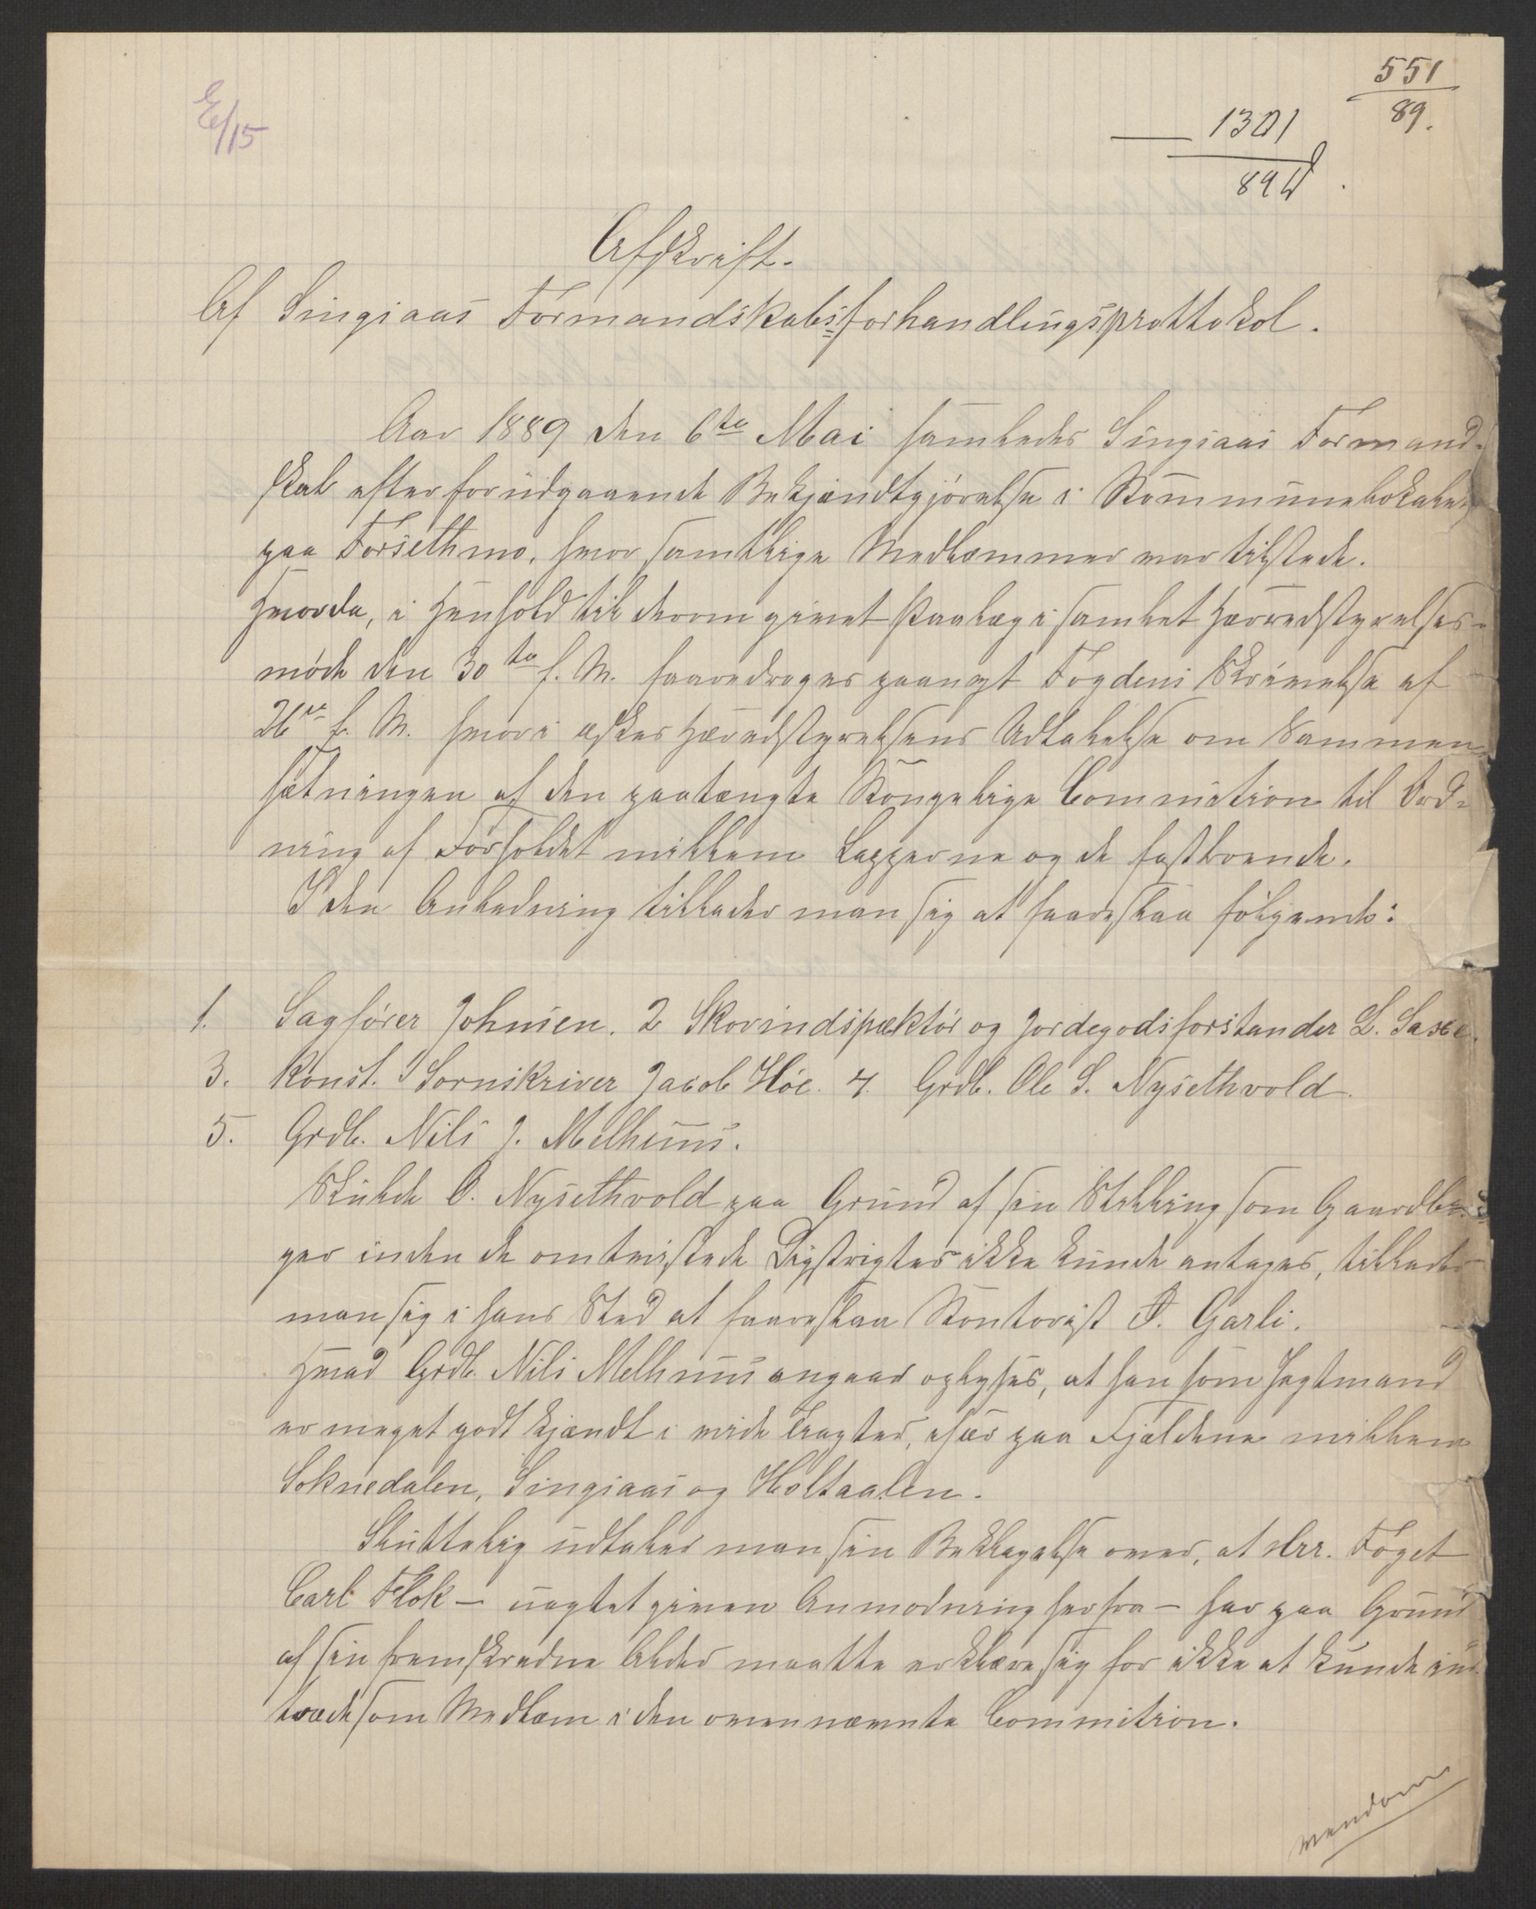 551
89.
E/15
1301
89
Afskrift.
Af Singsaas Formandskabsforhandlingsprottokol.
Aar 1889 den 6te Mai samledes Singsaas Formand-
skab efter forudgaaende Bekjændtgjørelse i Kommunelokalet
paa Forsethmo, hvor samtlige Medlemmer var tilstede.
Hvorda, i Henhold til derom givet Paalæg i samlet Herredstyrelses-
møde den 30te f. M. foredroges paanyt Fogdens Skrivelse af
26de f. M. hvori æskes Herredstyrelsens Udtalelse om Sammen-
sætningen af den paatængte Kongelige Commition til Ord-
ning af Forholdet mellem Lapperne og de fastboende.
I den Anledning tillader man sig at foreslaa følgende:
1. Sagfører Johnsen. 2 Skovindspæktør og Jordegodsforstander L. Saxe.
3. Konst. Sornskriver Jacob Høe. 4. Grdb. Ole S. Nysethvold.
5. Grdb. Nils J. Melhuus.
Skulde O. Nysethvold paa Grund af sin Stilling som Gaardbru-
ger inden de omtvistede Distrigter ikke kunde antages, tillader
man sig i hans Sted at foreslaa Kontorist P. Garli.
Hvad Grdb. Nils Melhuus angaar oplyses, at han som Jagtmand
er meget godt kjændt i vide Tragter, især paa Fjeldene mellem
Soknedalen, Singsaas og Holtaalen.
Sluttelig udtaler man sin Beklagelse over, at Hrr. Foget
Carl Flok – uagtet given Anmodning herfra – har paa Grund
af sin fremskredne Alder maatte erklære sig for ikke at kunde ind-
træde som Medlem i den ovennævnte Commition.
vend om